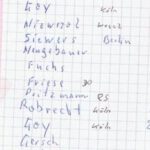 Goy Köln
Niewerol
Siewers Berlin
Neugebauer
Fuchs
Friese 30
Pritzmann RS
Robrecht Köln
Goy Köln
Gersch